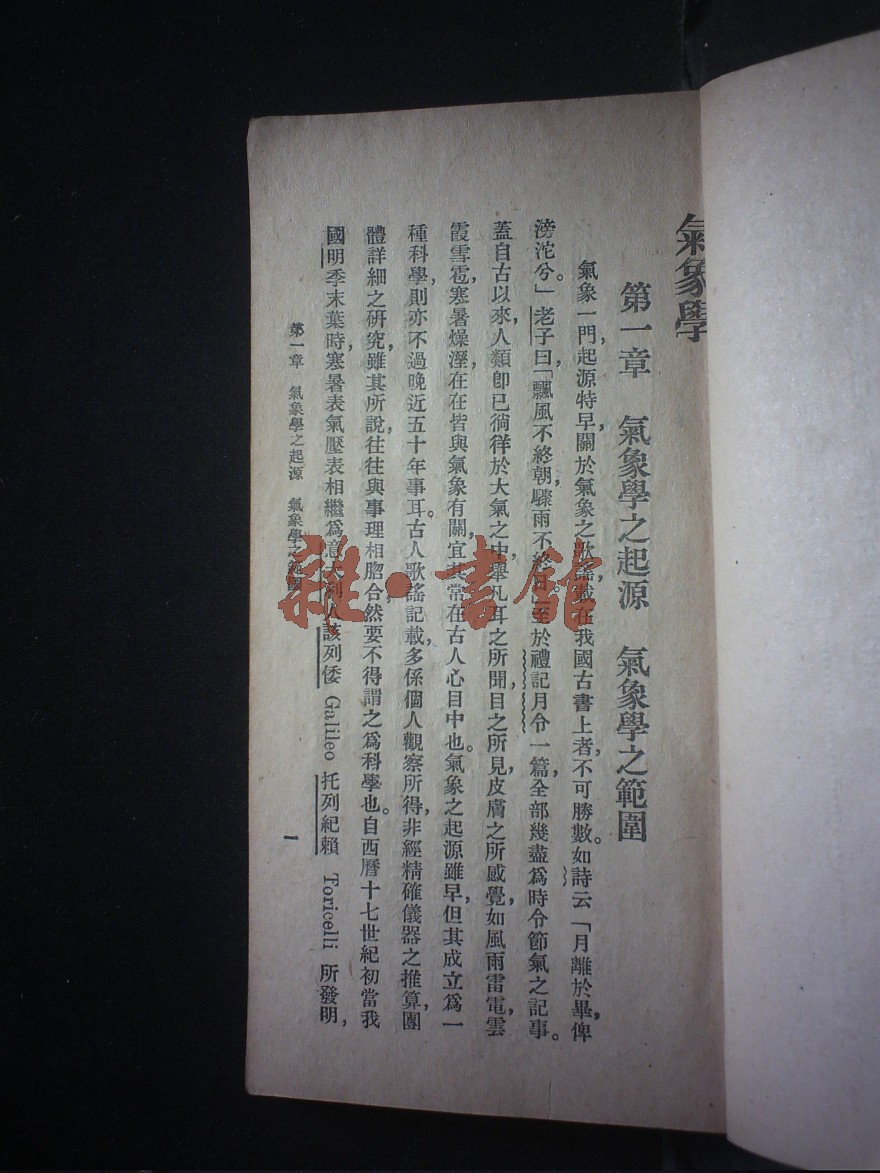 氣象學
第一章　氣象學之起源　氣象學之範圍
氣象一門，起源特早，關於氣象之歌謠，載在我國古書上者，不可勝數。如詩云「月離於畢，俾
滂沱兮。」老子曰「飄風不終朝，驟雨不終日。」至於禮記月令一篇，全部幾盡爲時令節氣之記事。
蓋自古以來，人類卽已徜徉於大氣之中，舉凡耳之所聞，目之所見，皮膚之所感覺，如風雨雷電，雲
霞雪雹，寒暑燥溼，在在皆與氣象有關，宜其常在古人心目中也。氣象之起源雖早，但其成立爲一
種科學，則亦不過晚近五十年事耳。古人歌謠記載，多係個人觀察所得，非經精確儀器之推算，團
體詳細之研究，雖其所說，往往與事理相脗合，然要不得謂之爲科學也。自西曆十七世紀初當我
國明季末葉時，寒暑表氣壓表相繼爲意大利人該列倭 Galileo 托列紀賴 Toricelli 所發明，
第一章　氣象學之起源　氣象學之範圍
一
雜·書館